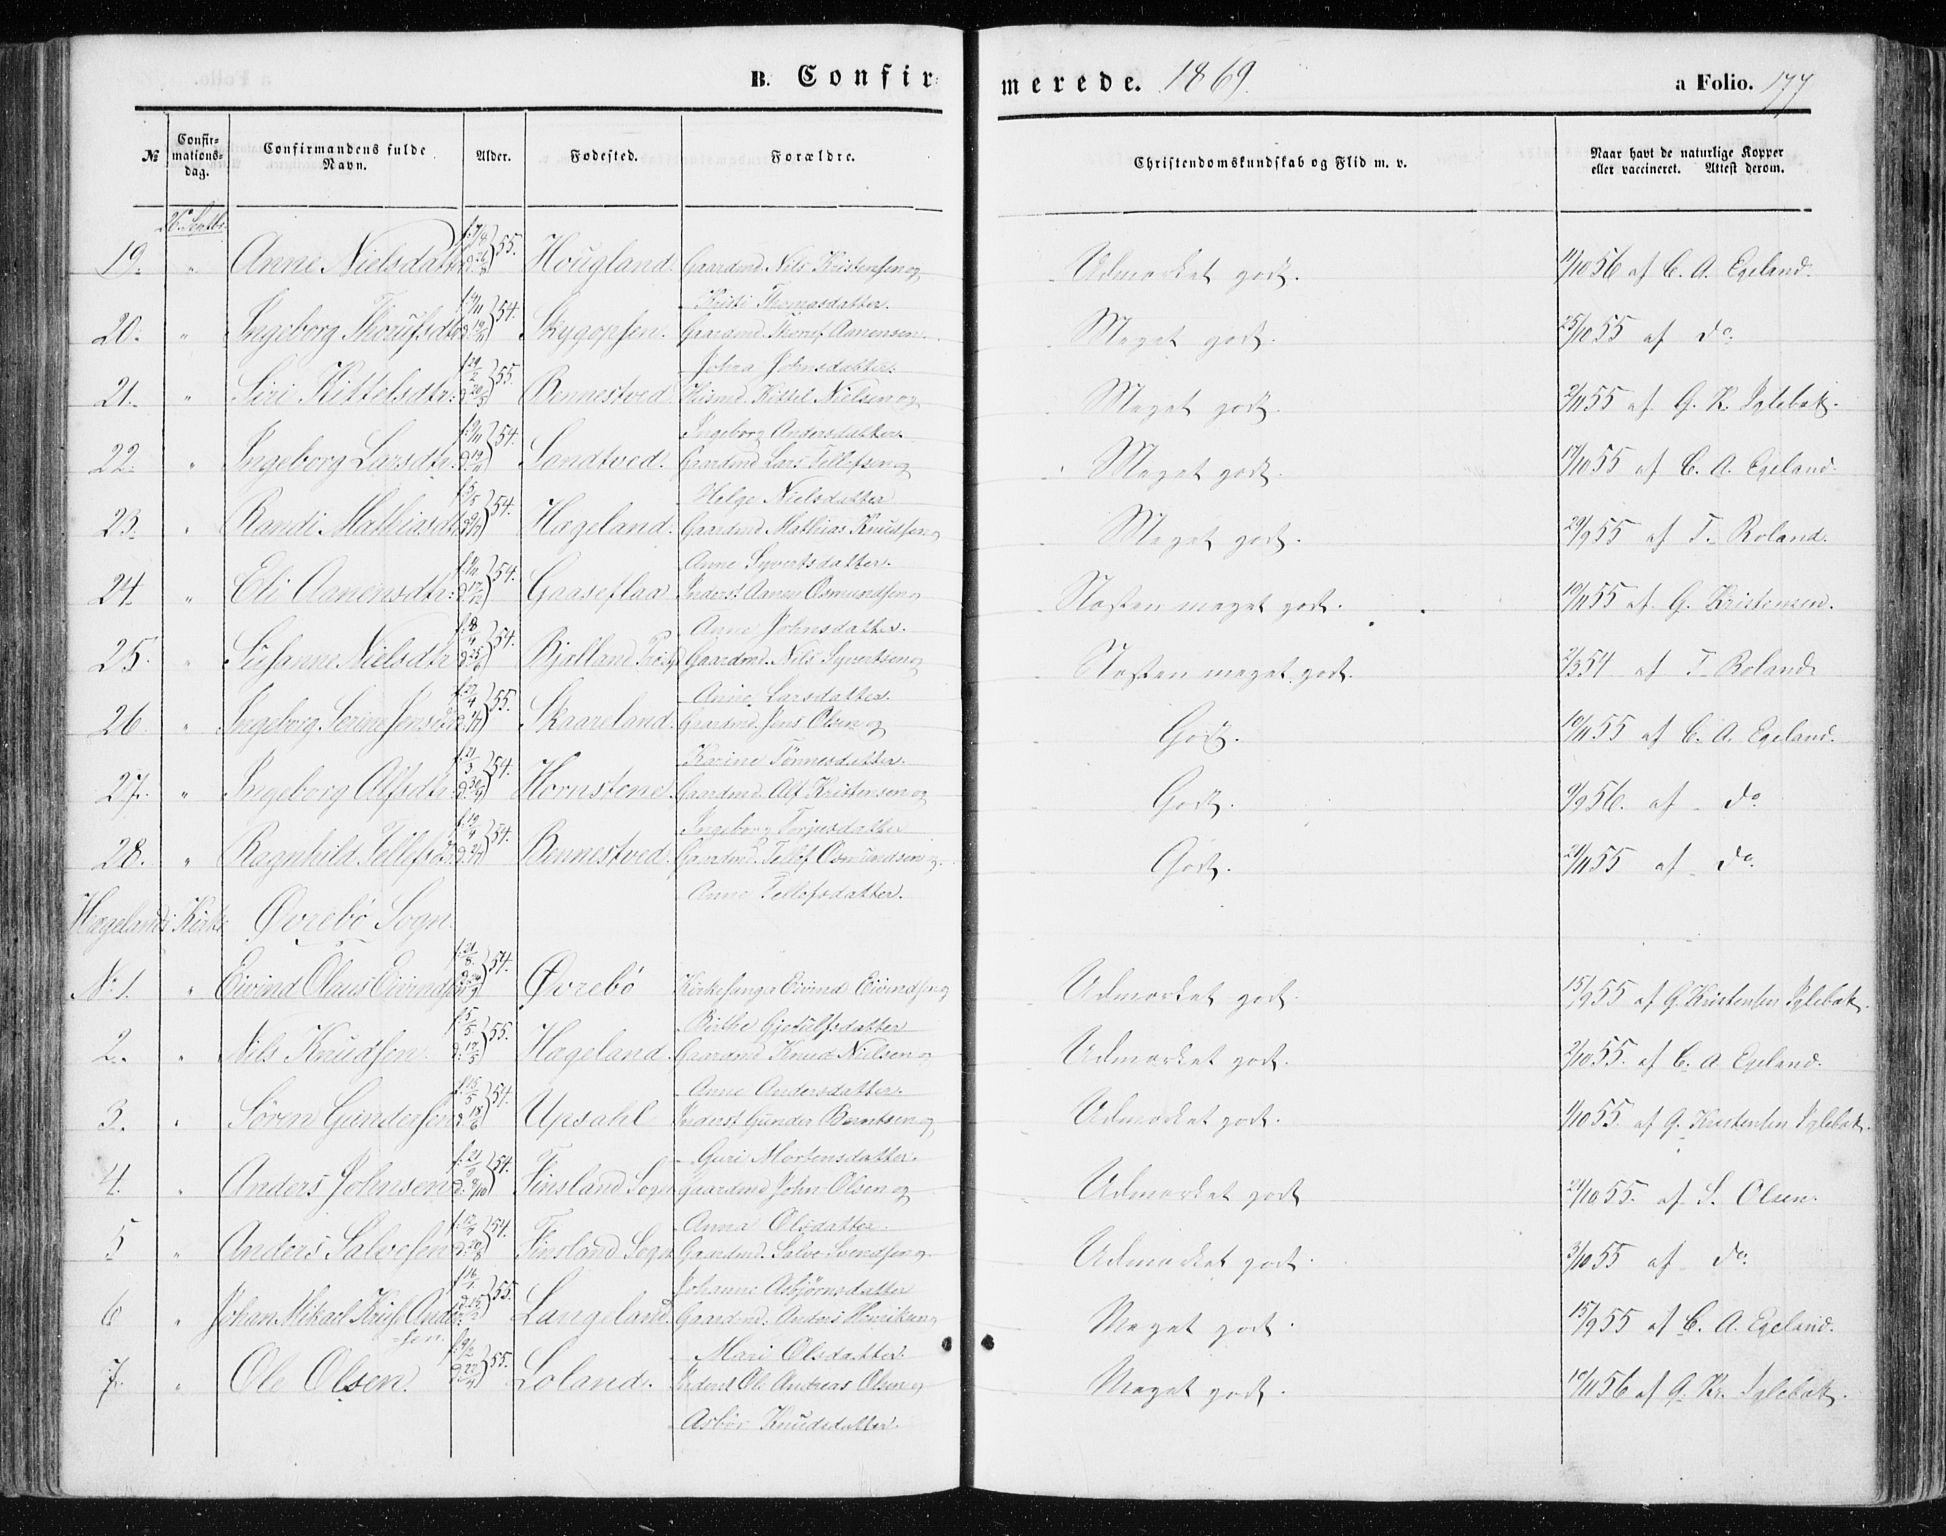 B. Confirmerede. 1869. a Folio. 177
№ Confirmationsdag. Confirmandens fulde Navn. Alder. Fødested. Forældre. Christendomskundskab og Flid m. v. Naar havt de naturlige Kopper eller vaccineret. Attest derom.
26. Septbr.
19. " Anne Nielsdatter 55. Hougland. Gaardmd. Nils Kristensen og Udmærket godt. 56 af C. A. Egeland.
Kristi Thomasdatter.
20. " Ingeborg Thorufsdtr 54. Gaardmd. Thoruf Aanensen. Meget godt. 25/10 55 af do.
Johna Johnsdatter.
21. " Siri Kittelsdtr. 55. Bennestved Kittel Nielsen og Meget godt. 2/11 55 af G. K. Iglebæk.
Ingeborg Andersdatter.
22. " Ingeborg Larsdtr. 54. Sandtved. Gaardmd Lars Tellefsen og Meget godt. 17/10 55 af C. A. Egeland.
Helge Nielsdatter
23. " Randi Mathiasdtr 54. Hægeland. Gaardmd Mathias Knudsen og Meget godt. 29/9 55 af T. Roland.
Anne Syvertsdatter.
24. " Eli Aanensdtr. 54. Gaaseflaa Inderst Aanen Osmundsen og Næsten meget godt. 10/11 55 af G. Kristensen.
Anne Johnsdatter.
25. " Susanne Nielsdtr 54. Bjelland Gaardmd. Nils Syvertsen og Næsten meget godt. 54 af T. Roland
Anne Larsdatter.
26. " Ingeborg Serine Jensdtr 55. Skaareland. Gaardmd. Jens Olsen og Godt. 10/11 55 af C. A. Egeland.
Karine Tønnesdatter.
27. " Ingeborg Alfsdtr. 54. Hornstene Gaardmd. Alf Kristensen og Godt. 9/9 56. af do
Ingeborg Torjusdatter
28. " Ragnhild Tellefsdtr 54. Bennestved. Gaardmd. Tellef Osmundsen og Godt. 21/11 55 af do.
Anne Tellefsdatter.
Hægelands Kirke Øvrebø Sogn.
No. 1. " Eivind Olaus Eivindsen 54. Øvrebø Kirkesanger Eivind Eivindsen og Udmærket godt. 15/9 55 af G. Kristensen Iglebæk.
Birthe Gjerulfsdatter
2. " Nils Knudsen. 55. Hægeland. Gaardmd Knud Nielsen og Udmærket godt. 2/10 55. af C. A Egeland.
Anne Andersdatter.
3. " Søren Gundersen 54. Upsahl Inderst Gunder Berntsen og Udmærket godt. 1/10 55. af G. Kristensen Iglebæk.
Guri Mortensdatter.
4. " Anders Johnsen 54. Finsland Sogn Gaardmd John Olsen og Udmærket godt 21/10 55. af S. Olsen.
Anna Olsdatter.
5 " Anders Salvesen 54. Finsland Sogn Gaardmd. Salve Svendsen og Udmærket godt. 3/10 55 af do.
Johanne Asbjørnsdatter
6 " Johan Mikael Andersen. 55. Langeland. Gaardmd. Anders Henriksen og Meget godt. 15/9 55 af C. A. Egeland.
Mari Olsdatter.
7. " Ole Olsen. 55. Loland. Inderst Ole Andreas Olsen og Meget godt. 10/11 56 af G. Kr. Iglebæk.
Asbør Knudsdatter.